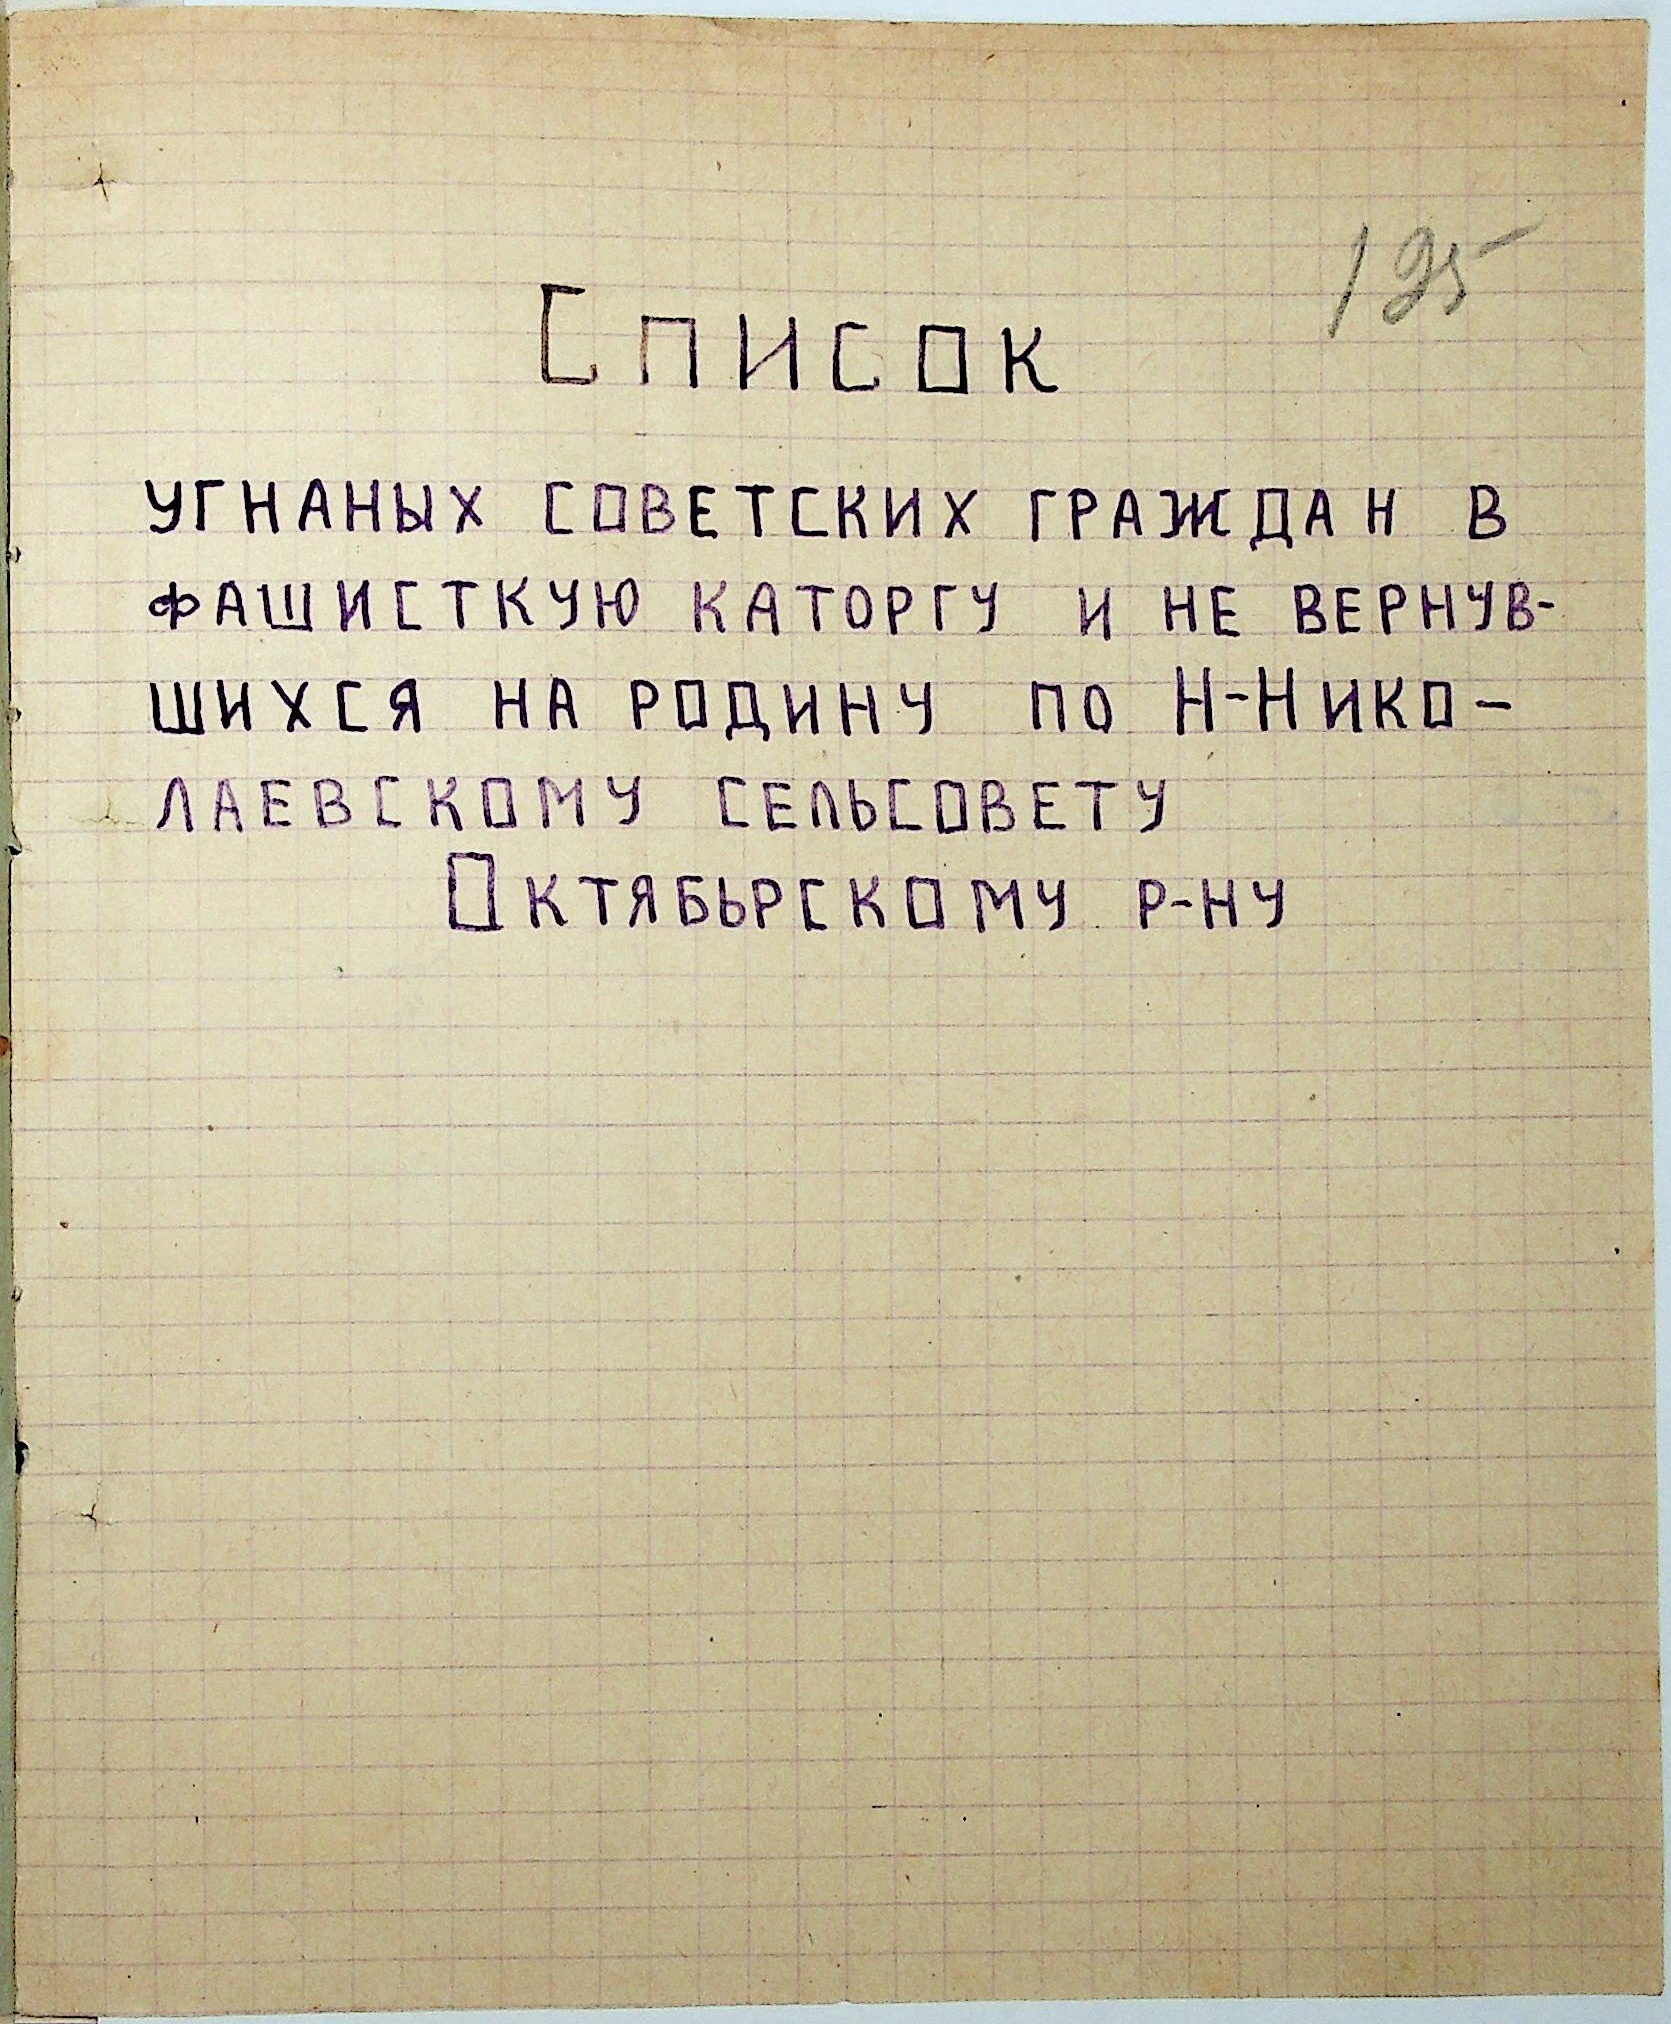 195
Список
угнаных советских граждан в
фашисткую каторгу и не вернув-
шихся на родину по Н-Нико-
лаевскому сельсовету
Октябьрскому р-ну